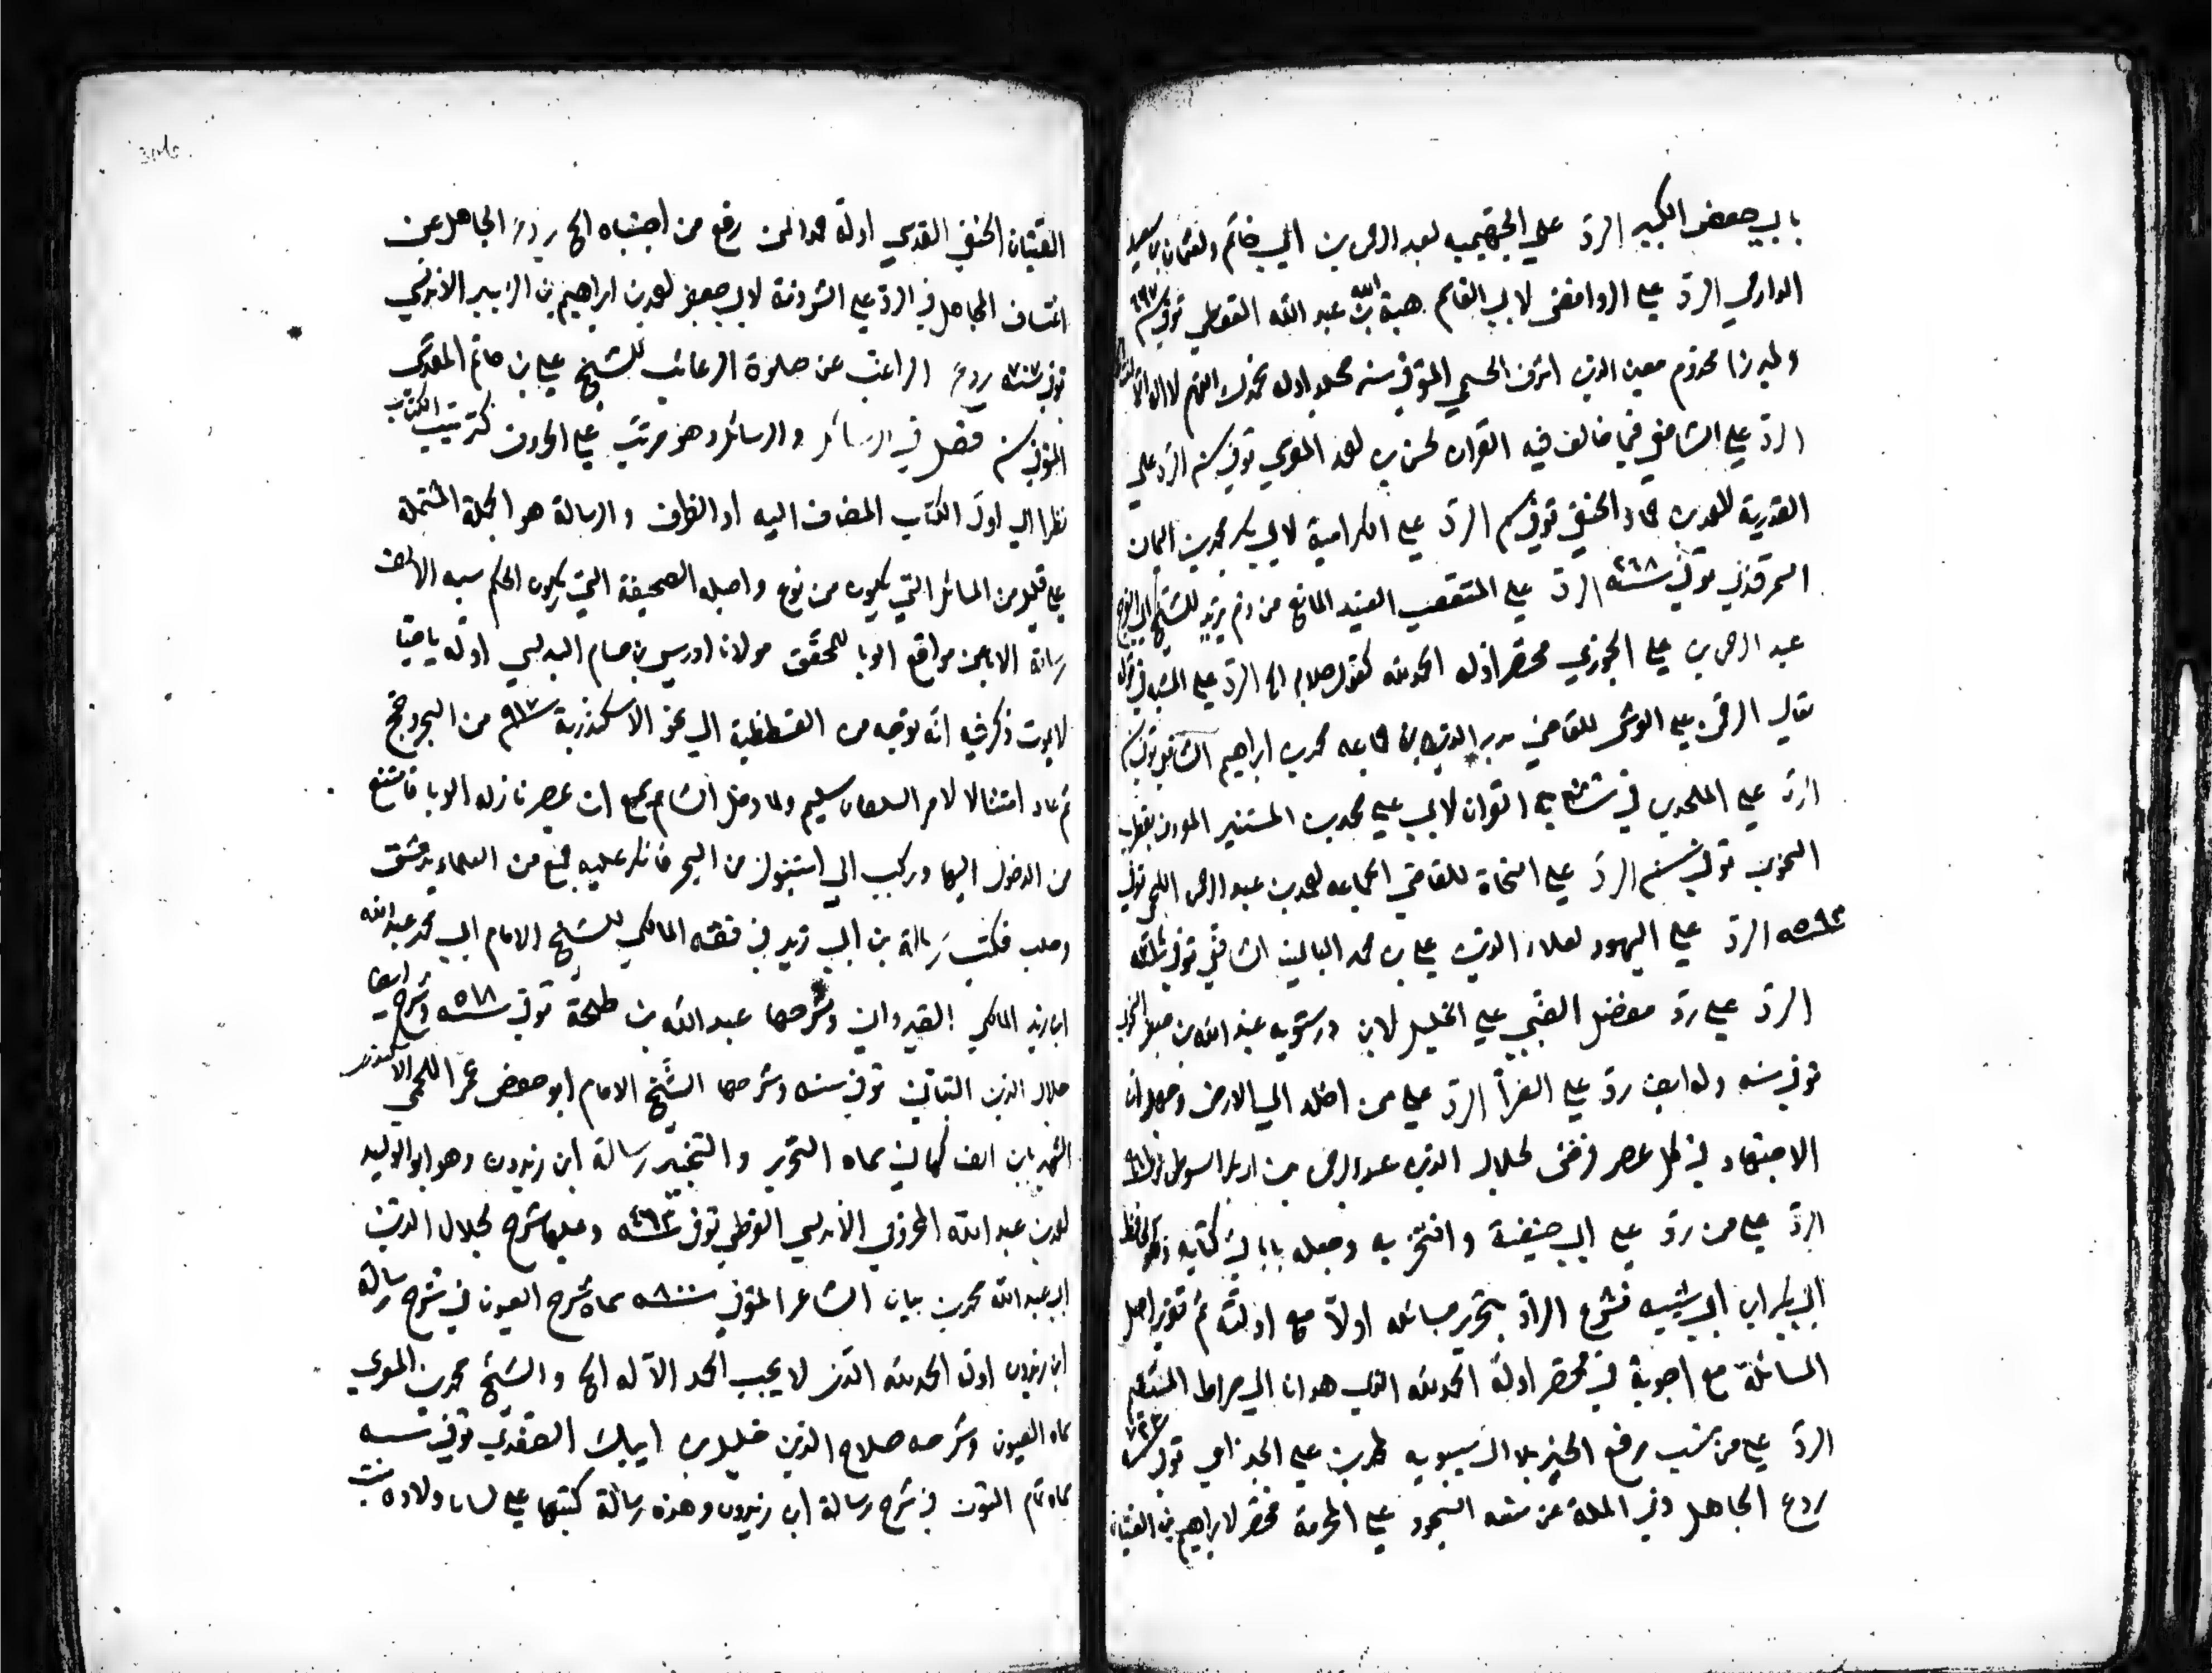 بابي حفص الكبير الرد على الجهمية لعبد الرحمن بن ابي حاتم ولعثمان بن سعيد
الدارمي الرد على الروافض لابي القاسم هبة الله بن عبد الله القفطي توفي سنة ٦٩٧
ولميرزا مخدوم معين الدين اشرف الحسني المتوفى سنه مجلد اوله نحمدك اللهم لا اله الا
الرد على الشافعي فيما خالف فيه القران لحسن بن احمد المقري توفي سنه الرد على
القدرية لمحمد بن حماد الحنفي توفي سنه الرد على الكرامية لابي بكر محمد بن اليمان
السمرقندي توفي سنه ٢٦٨ الرد على المتعصب العنيد المانع من ذم يزيد للشيخ ابي الفرج
عبد الرحمن بن علي الجوزي مختصر اوله الحمد لله كفؤ جلاله الخ الرد على المشبه في قوله
تعالى الرحمن على العرش للقاضي بدر الدين بن جماعه محمد بن ابراهيم الشافعي توفي سنه
الرد على الملحدين في متشابه القران لابي علي محمد بن المستنير المعروف بقطرب
النحوي توفي سنه الرد على النحاة للقاضي الجماعه احمد بن عبد الرحمن اللخمي توفي
سنه ٥٩٢ الرد على اليهود لعلاء الدين علي بن محمد الباجي الشافعي توفي سنه
الرد على رد مفضل الضبي على الخليل لابن درستويه عبد الله بن جعفر النحوي
توفي سنه وله ايضا رد على الفرأ الرد على من اخلد الى الارض وجهل ان
الاجتهاد في كل عصر فرض لجلال الدين عبد الرحمن بن ابي بكر السيوطي توفي سنه ٩١١
الرد على من رد على ابي حنيفة وافتخر به وجعله بابا في كتابه وهو الحافظ
ابي بكر ابن ابي شيبه فشرع الراد بتحرير مسائله اولا مع ادلته ثم تقرير اصل
المسائلة مع اجوبة في مختصر اوله الحمد لله الذي هدانا الى صراط المستقيم
الرد على من نسب رفع الخبر بلا الى سيبويه لمحمد بن علي الجذامي توفي سنه ٧٢٣
ردع الجاهل وفي الملة عن مشقه السجود على الخرمة مختصر لابراهيم بن الفتيان
الفتيان الحنفي القدسي اوله حمدا لمن رفع من اجتباه الخ ردع الجاهل عن
اعتساف المجاهل في الرد على الشوذية لابي جعفر احمد بن ابراهيم بن الزبير الاندلسي
توفي سنه ٧٠٧ ردع الراغب عن صلاة الرغائب للشيخ علي بن غانم المقدسي
المتوفى سنه فصل في الرسائل والرسائل وهو مرتب على الحروف كترتيب الكتاب
نظرا الى اول الكتاب المضاف اليه او الظرف والرسالة هو المجلة المشتملة
على قليل من المسائل التي تكون من نوع واصله الصحيفة التي يكون الحكم سبه الالف
رسالة الاباء عن مواقع الوبا للمحقق مولانا ادريس بن حسام البدليسي اوله يا حيا
لا يموت ذكر فيه انه توجه من القسطنطينية الى نحو الاسكندرية سنه ٩١٧ من البحر وحج
ثم عاد امتثالا لامر السلطان سليم ولما دخل الشام سمع ان بمصر نازله الوبا فامتنع
من الدخول اليها وركب الى استنبول من البحر فانكر عليه جمع من العلماء بدمشق
وحلب فكتب رسالة بن ابي زيد في فقه المالكي للشيخ الامام ابي محمد عبد الله
ابن ابي زيد المالكي القيرواني وشرحها عبد الله بن طلحة توفي سنه ٥١٨ وشرح ايضا
جلال الدين التباني توفي سنه وشرحها الشيخ الامام ابو حفص عمر اللخمي الاسكندر
الشهير بابن الفاكهاني سماه التحرير والتحبير رسالة ابن زيدون وهو ابو الوليد
احمد بن عبد الله المخزومي الاندلسي القرطبي توفي سنه ٤٦٣ وعليها شرح لجلال الدين
ابي عبد الله محمد بن نباتة الشاعر المتوفى سنه ٨٠٠ سماه شرح العيون في شرح رسالة
ابن زيدون اوله الحمد لله الذي لا يجب الحمد الا له الخ والشيخ محمد بن الموي
سماه العيون وشرحه صلاح الدين خليل بن ايبك الصفدي توفي سنه
سماه تمام المتون في شرح رسالة ابن زيدون وهذه رسالة كتبها على لسان ولاده بنت